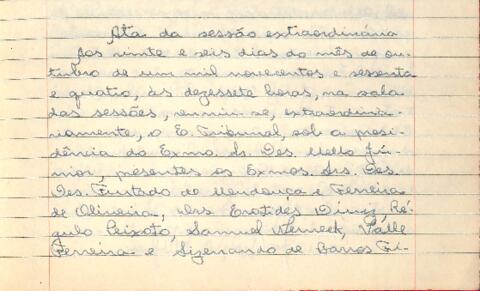 Ata da sessão extraordinária
Aos vinte e seis dias do mês de ou-
tubro de um mil novecentos e sessenta
e quatro, às dezessete horas, na sala
das sessões, reuniu-se, extraordina-
riamente, o E. Tribunal, sob a presi-
dência do Exmo. Sr. Des. Mello Jú-
nior, presentes os Exmos. Srs. Des.
Des. Furtado de Mendonça e Ferreira
de Oliveira, Drs Erotides Diniz, Ré-
gulo Peixoto, Samuel Werneck, Valle
Ferreira e Sizenando de Barros Fi-